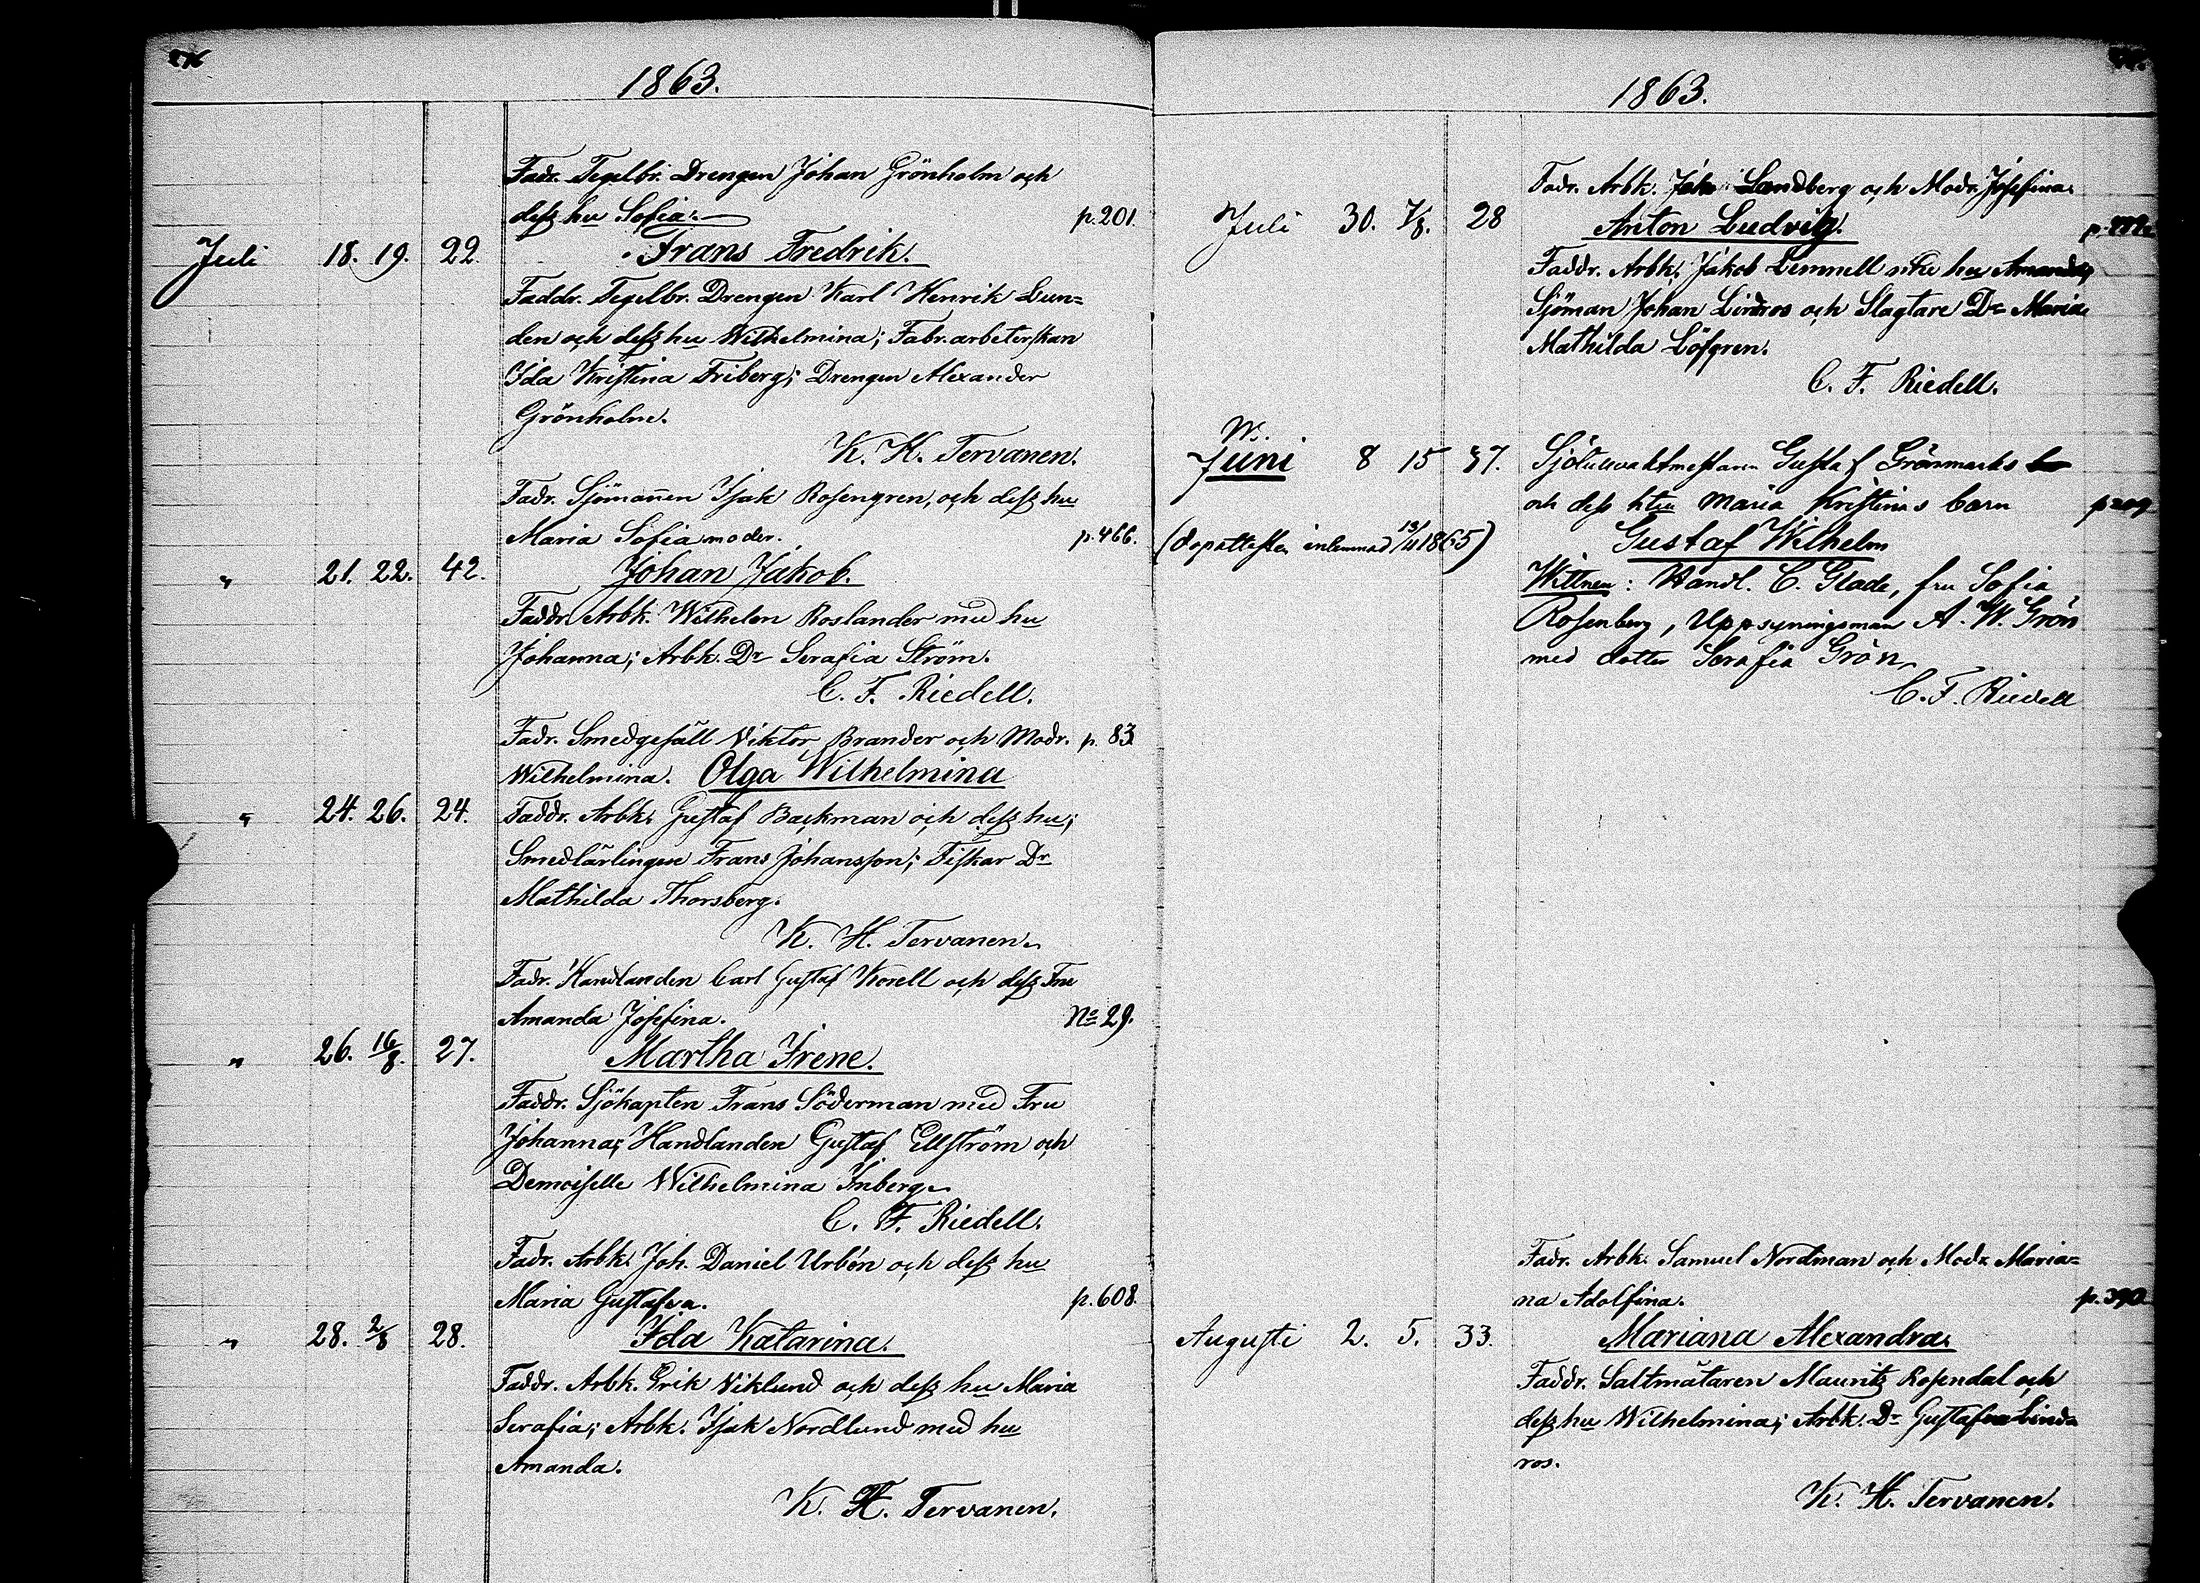 276
1863.
Fadr. Tegelbr. Drengen Johan Grönholm och
dess hu Sofia. p. 201.
Juli 18. 19. 22. Frans Fredrik.
Faddr. Tegelbr. Drengen Karl Henrik Lun=
den och dess hu Wilhelmina; Fabr.arbeterskan
Ida Kristina Friberg; Drengen Alexander
Grönholm.
K. H. Tervanen.
Fadr. Sjömannen Isak Rosengren, och dess hu
Maria Sofia moder. p. 466.
" 21. 22. 42. Johan Jakob.
Faddr. Arbk. Wilhelm Roslander med hu
Johanna; Arbk. Dr Serafia Ström.
C. F. Riedell.
Fadr. Smedgesäll Viktor Brander och Modr. p. 83
Wilhelmina. Olga Wilhelmina
" 24. 26. 24. Faddr. Arbk. Gustaf Backman och dess hu;
Smedlärlingen Frans Johansson; Fiskar Dr
Mathilda Thorsberg.
K. H. Tervanen.
Fadr. Handlanden Carl Gustaf Korell och dess Fru
Amanda Josefina. No 29.
" 26. 16/8. 27. Martha Irene.
Faddr. Sjökapten Frans Söderman med Fru
Johanna; Handlanden Gustaf Ellström och
Demoiselle Wilhelmina Inberg.
C. F. Riedell.
Fadr. Arbk. Joh. Daniel Urbén och dess hu
Maria Gustafva. p. 608.
" 28. 2/8 28. Ida Katarina.
Faddr. Arbk. Erik Viklund och dess hu Maria
Serafia; Arbk. Isak Nordlund med hu
Amanda.
K. H. Tervanen.
1863.
Fadr. Arbk. Landberg och Modr. Josefina.
Juli 30. 28 Anton Ludvig.
Faddr. Arbk. Jakob Lemnell och hu Amanda;
Sjöman Johan Lindros och Slagtare Dr Maria
Mathilda Löfgren.
C. F. Riedell.
Juni 8 15 37. Sjötullvaktmestaren Gustaf Grönmarks
och dess htru Maria Kristinas barn p 209
(dopattesten inlemnad 1865) Gustaf Wilhelm
Wittnen: Handl. C. Glade, fru Sofia
Rosenberg, Uppsyningsman A. W. Grön
med dotter Serafia Grön
C. F. Riedell
Fadr. Arbk. Samuel Nordman och Modr. Maria=
na Adolfina. p. 390
Augusti 2. 5. 33. Mariana Alexandra.
Faddr. Saltmätaren Mauritz Rosendal och
dess hu Wilhelmina; Arbk. Dr Gustafva Lind
ros.
K. H. Tervanen.